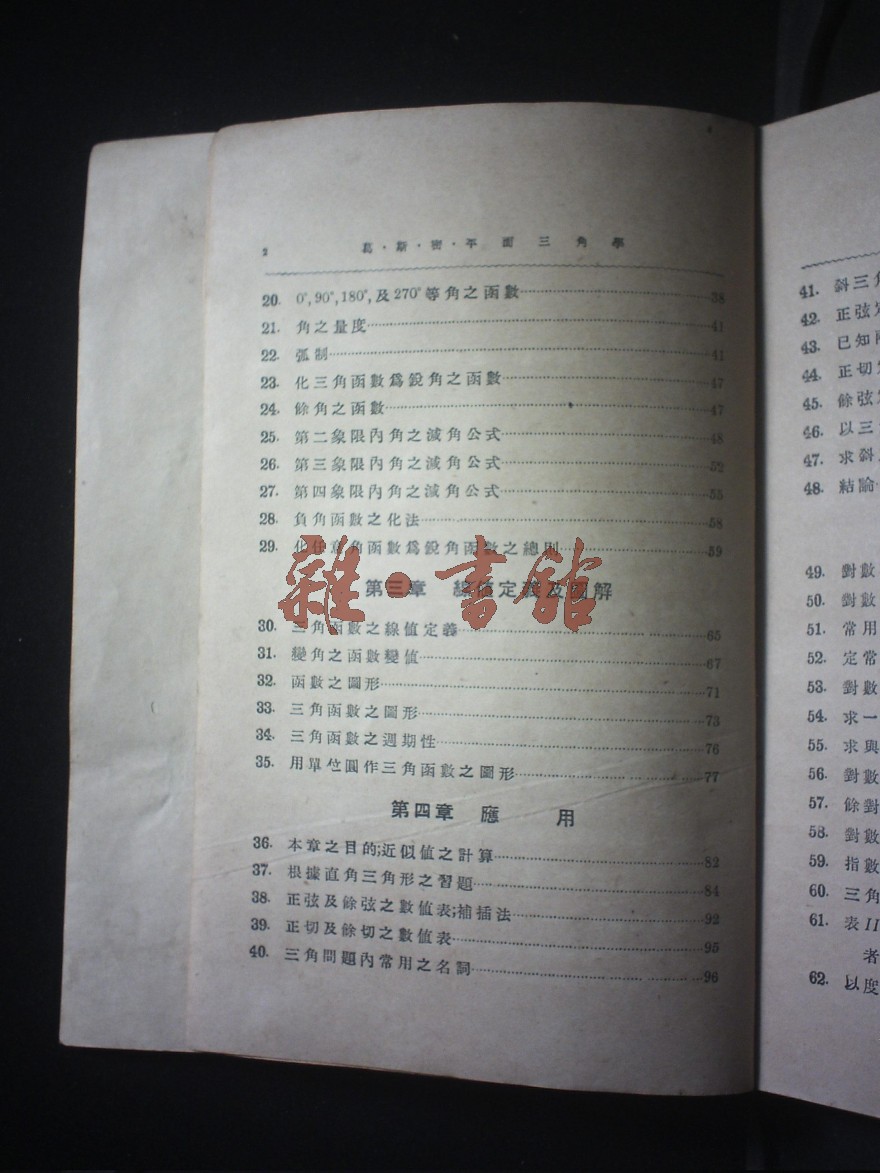 2 葛·斯·密·平面三角學
20. 0°, 90°, 180°, 及 270° 等角之函數 38
21. 角之量度 41
22. 弧制 41
23. 化三角函數爲銳角之函數 47
24. 餘角之函數 47
25. 第二象限內角之減角公式 48
26. 第三象限內角之減角公式 52
27. 第四象限內角之減角公式 55
28. 負角函數之化法 58
29. 化任意角函數爲銳角函數之總則 59
第三章 線值定義及圖解
30. 三角函數之線值定義 65
31. 變角之函數變值 67
32. 函數之圖形 71
33. 三角函數之圖形 73
34. 三角函數之週期性 76
35. 用單位圓作三角函數之圖形 77
第四章 應用
36. 本章之目的;近似值之計算 82
37. 根據直角三角形之習題 84
38. 正弦及餘弦之數值表;補插法 92
39. 正切及餘切之數值表 95
40. 三角問題內常用之名詞 96
雜·書館
41. 斜三角
42. 正弦定
43. 已知兩
44. 正切
45. 餘弦
46. 以三
47. 求斜
48. 結論
49. 對數
50. 對數
51. 常用
52. 定常
53. 對數
54. 求一
55. 求與
56. 對數
57. 餘對
58. 對數
59. 指數
60. 三角
61. 表 II
者
62. 以度